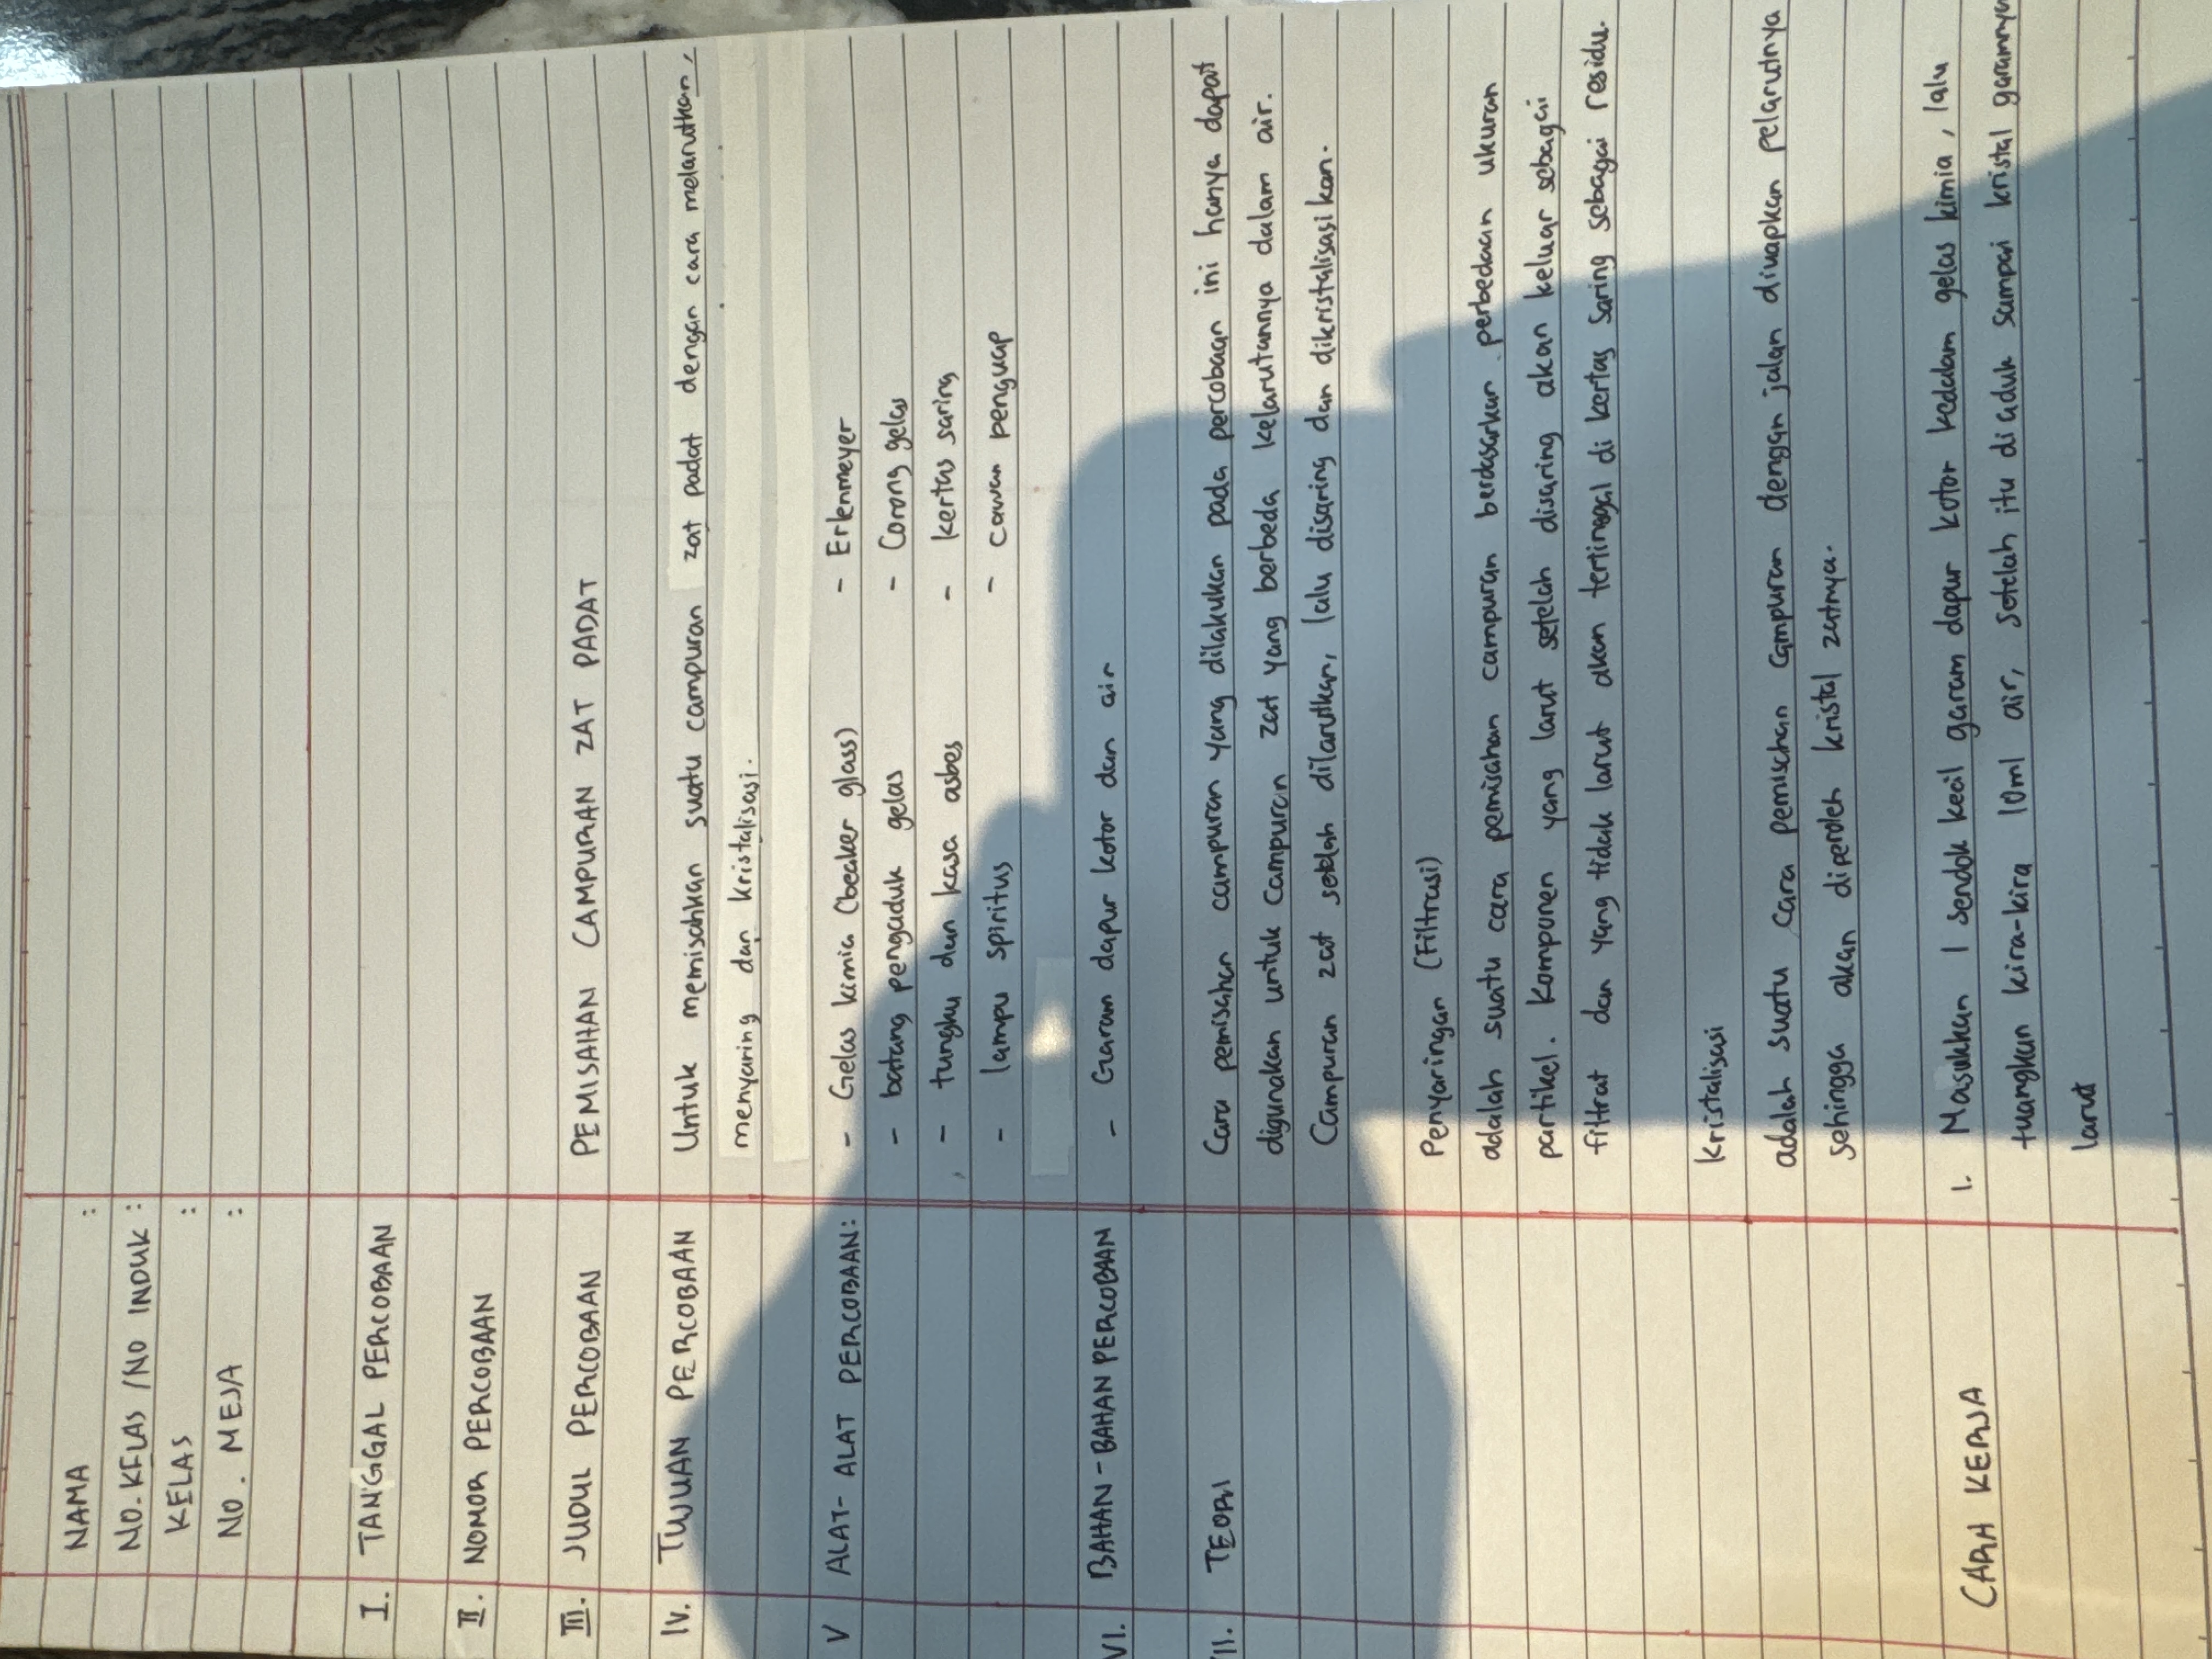 NAMA :
NO. KELAS /NO INDUK :
KELAS :
NO. MEJA :
I. TANGGAL PERCOBAAN
II. NOMOR PERCOBAAN
III. JUDUL PERCOBAAN PEMISAHAN CAMPURAN ZAT PADAT
IV. TUJUAN PERCOBAAN Untuk memisahkan suatu campuran zat padat dengan cara melarutkan,
menyaring dan kristalisasi.
V ALAT-ALAT PERCOBAAN: - Gelas kimia (beaker glass) - Erlenmeyer
- batang pengaduk gelas - Corong gelas
- tungku dan kasa asbes - kertas saring
- lampu spiritus - cawan penguap
VI. BAHAN-BAHAN PERCOBAN - Garam dapur kotor dan air
VII. TEORI Cara pemisahan campuran yang dilakukan pada percobaan ini hanya dapat
digunakan untuk campuran zat yang berbeda kelarutannya dalam air.
Campuran zat setelah dilarutkan, lalu disaring dan dikristalisasikan.
Penyaringan (Filtrasi)
adalah suatu cara pemisahan campuran berdasarkan perbedaan ukuran
partikel. Komponen yang larut setelah disaring akan keluar sebagai
filtrat dan yang tidak larut akan tertinggal di kertas saring sebagai residu.
Kristalisasi
adalah suatu cara pemisahan campuran dengan jalan diuapkan pelarutnya
sehingga akan diperoleh kristal zatnya.
CARA KERJA 1. Masukkan 1 sendok kecil garam dapur kotor kedalam gelas kimia, lalu
tuangkan kira-kira 10ml air, setelah itu di aduk sampai kristal garamnya
larut